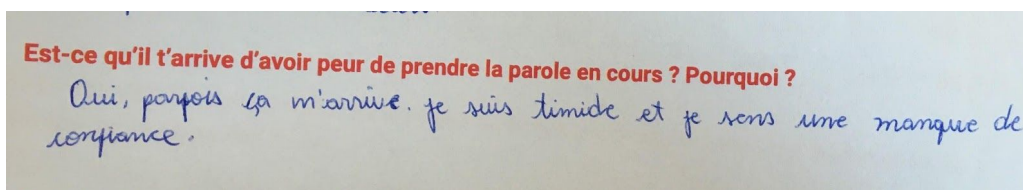 Est-ce qu'il t'arrive d'avoir peur de prendre la parole en cours ? Pourquoi ?
Oui, parfois ça m'arrive. je suis timide et je sens une manque de
confiance.